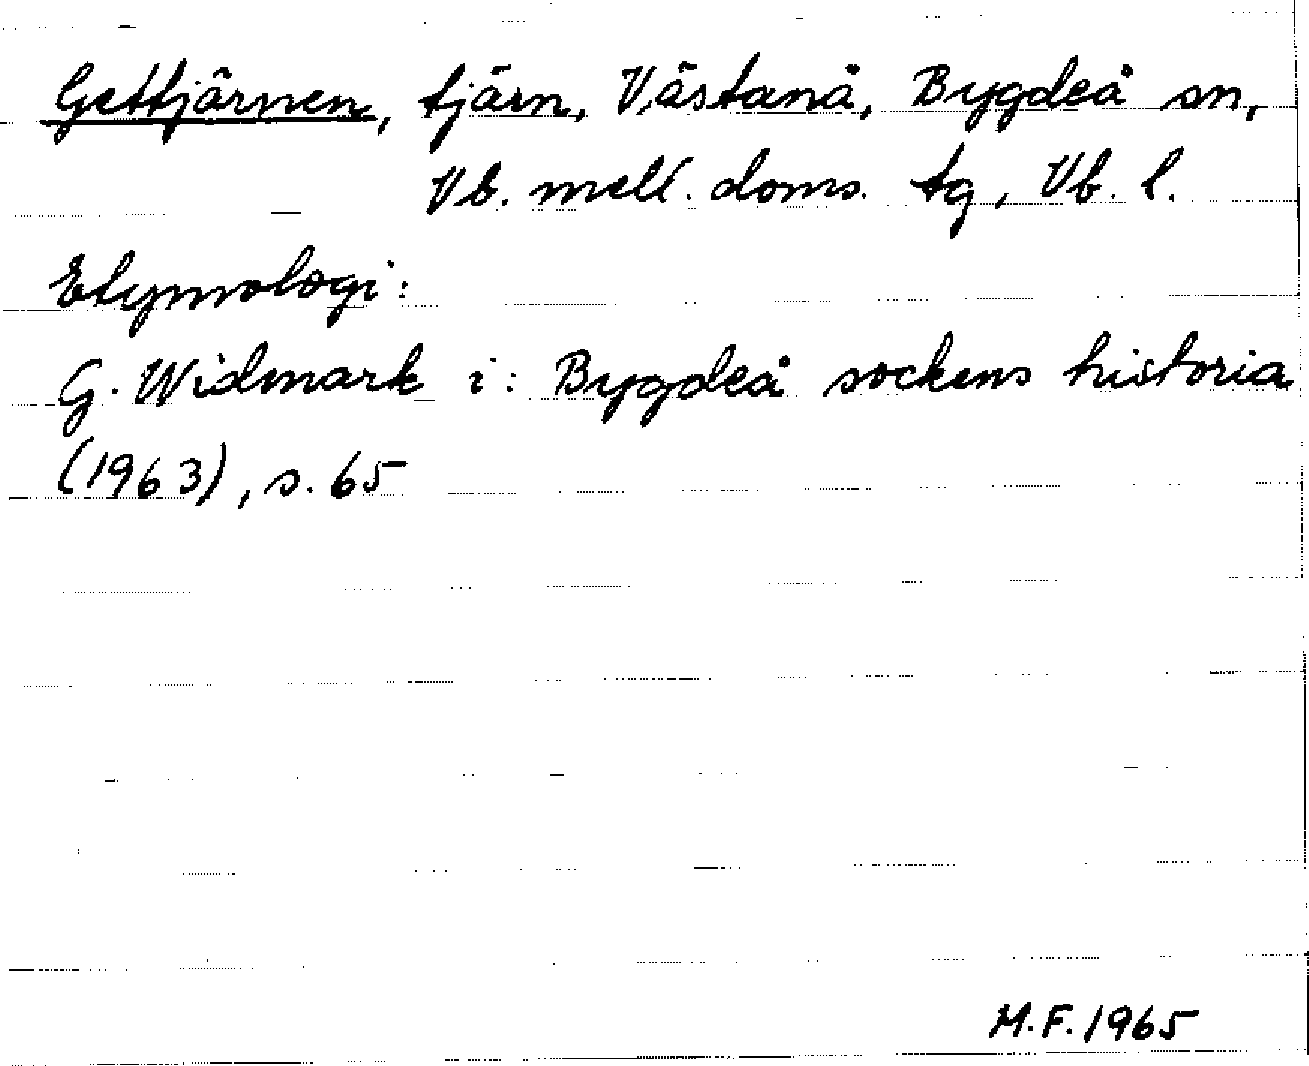 Gettjärnen, tjärn, Västanå, Bygdeå sn,
Vb. mell. doms. tg, Vb. l.
Etymologi:
G. Widmark i: Bygdeå sockens historia
(1963), s. 65
M.F. 1965